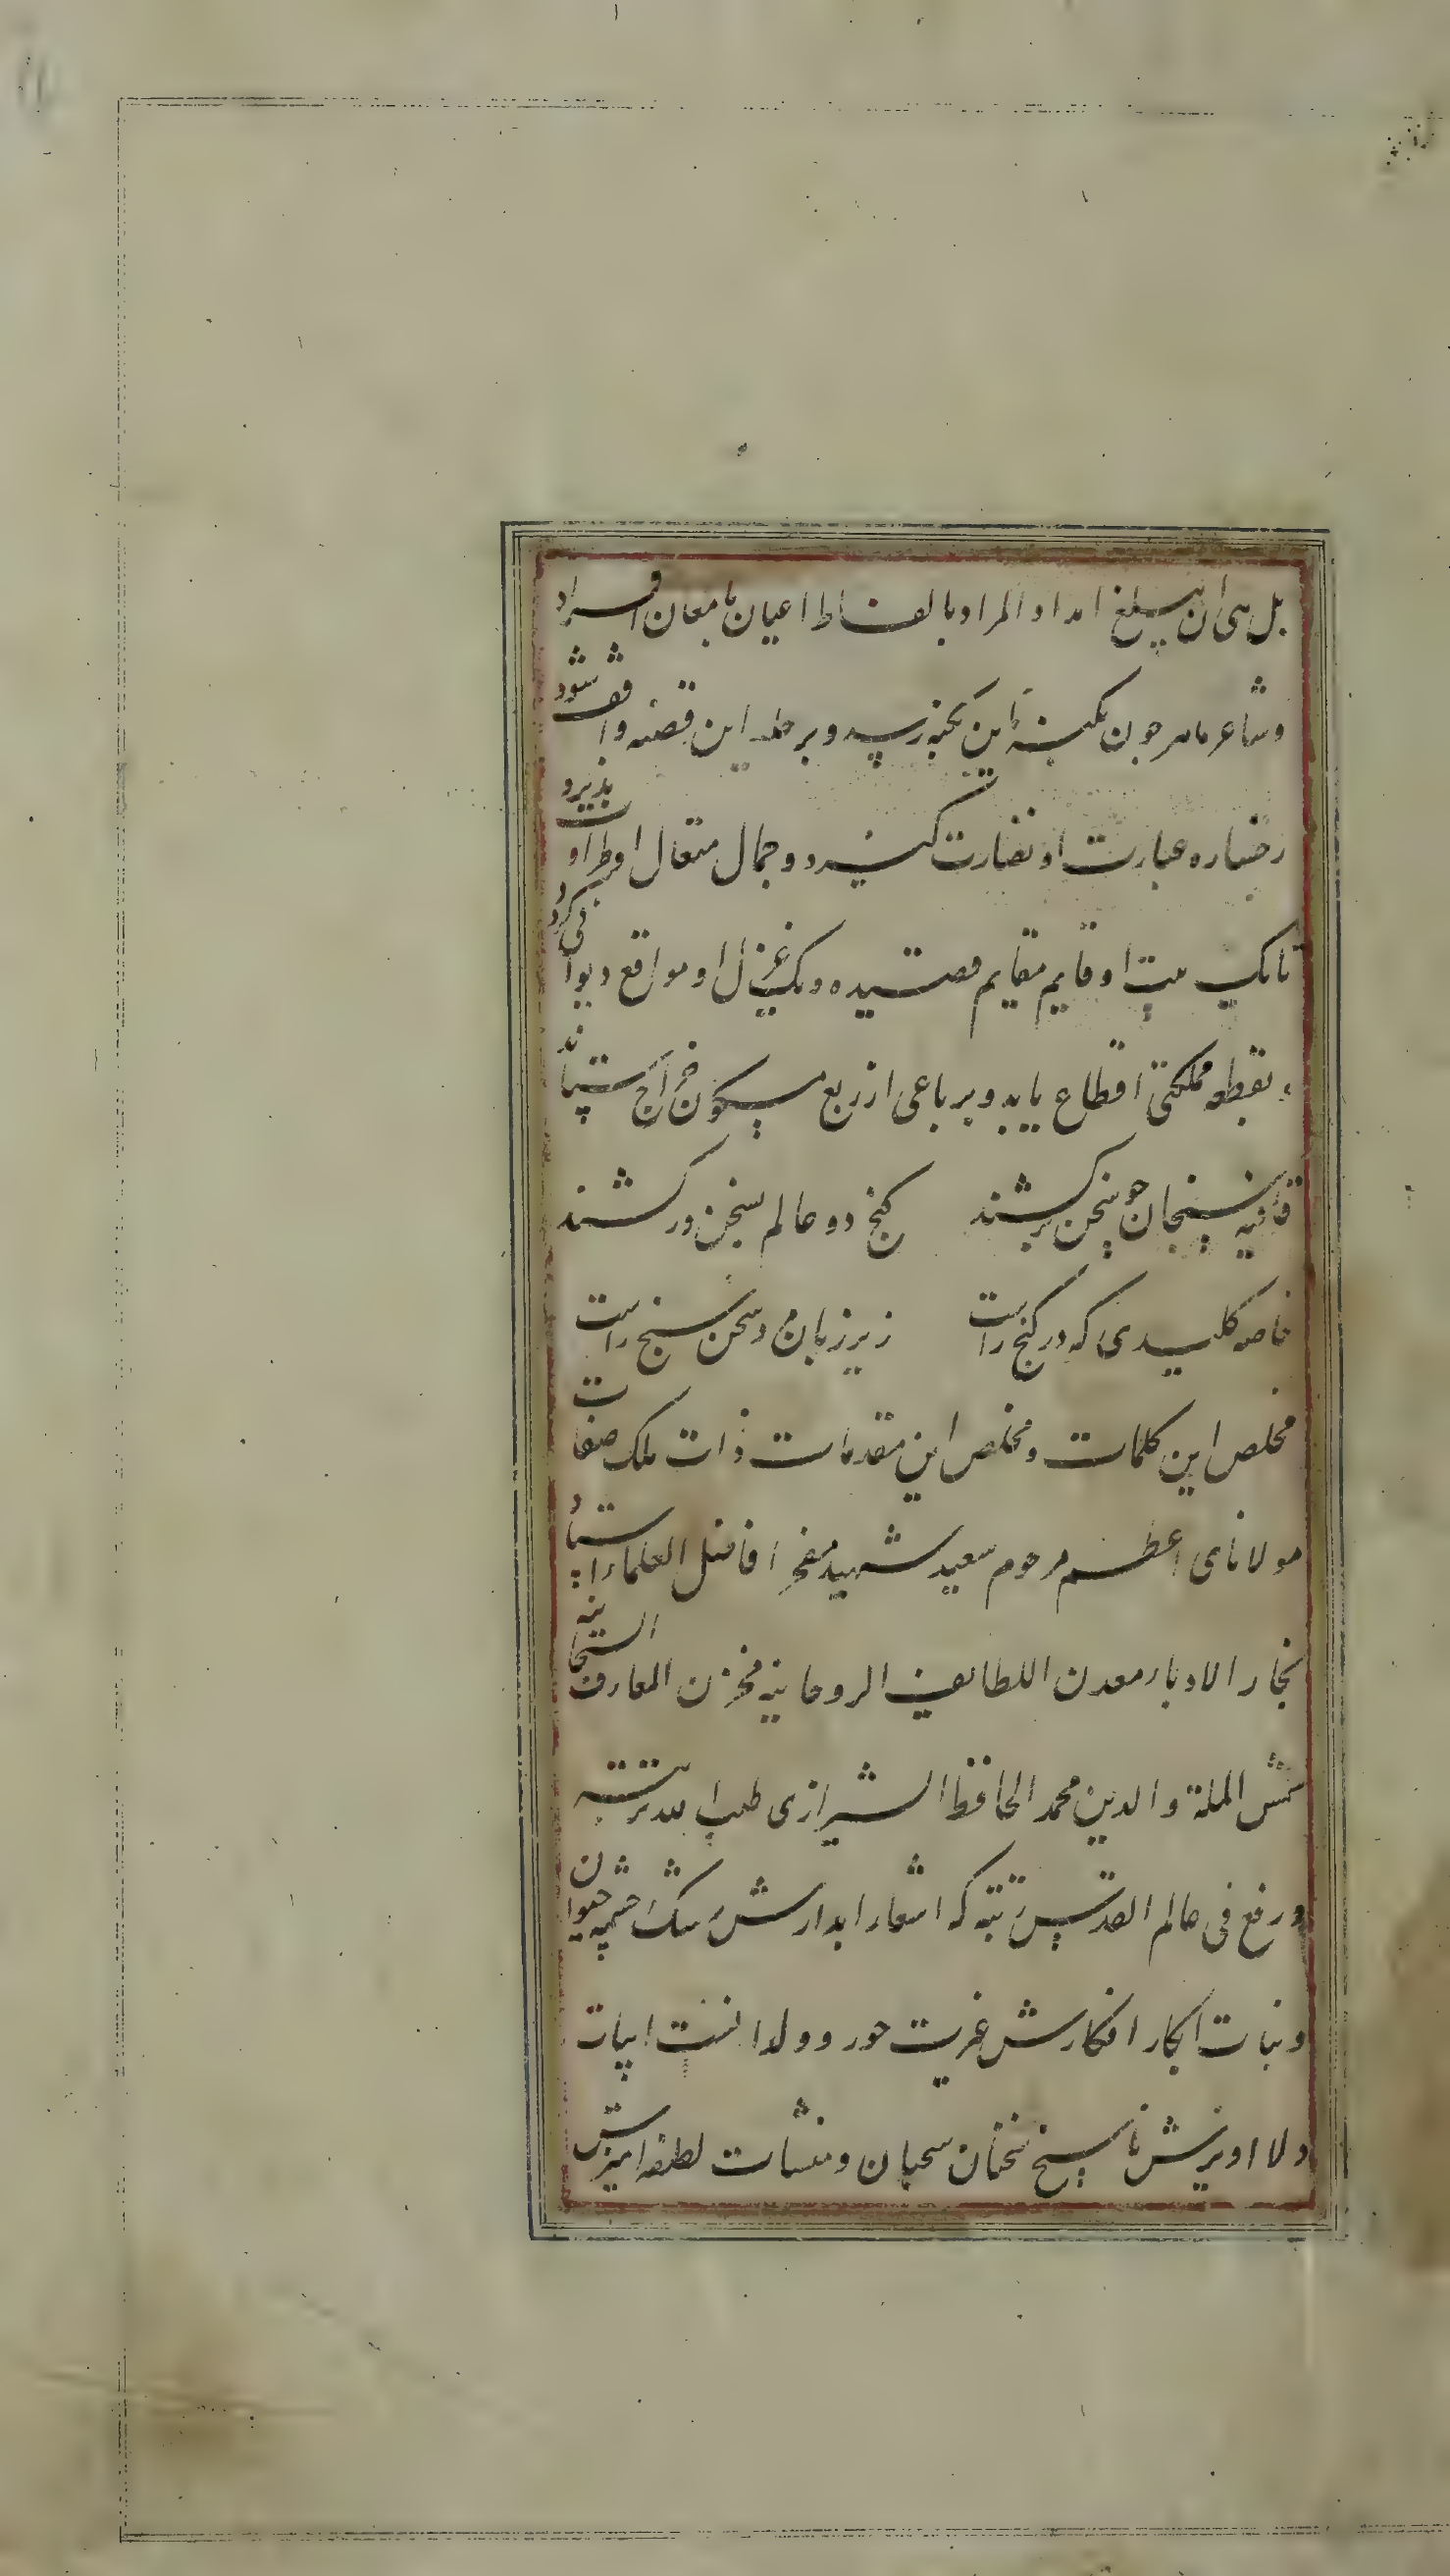 بل هی ان یبلغ امداد المراد بالفاظ اعیان بامعان افراد
و شاعر ماهر چون بکنه این نکته رسد و بر جمله این قصه واقف شود
رخساره عبارت او نضارت گیرد و جمال مقال او طراوت پذیرد
تا یک بیت او قایم مقام قصیده و یک غزل او مواقع دیوانی گردد
و بقطعه مملکتی اقطاع یابد و برباعی از ربع مسکون خراج ستاند
قافیه سنجان چو سخن برکشند گنج دو عالم بسخن درکشند
خاصه کلیدی که در گنج راست زیر زبان مرد سخن سنج راست
مخلص این کلمات و مخلص این مقدمات ذات ملک صفات
مولانای اعظم مرحوم سعید شهید مفخر افاضل العلماء استاد
نحار الادبا معدن اللطایف الروحانیه مخزن المعارف السبحانیه
شمس الملة والدین محمد الحافظ الشیرازی طیب الله تربته
و رفع فی عالم القدس رتبته که اشعار ابدارش رشک چشمه حیوان
و بنات ابکار افکارش غیرت حور و ولدانست ابیات
دلاویزش ناسخ سخنان سحبان و منشات لطف امیزش